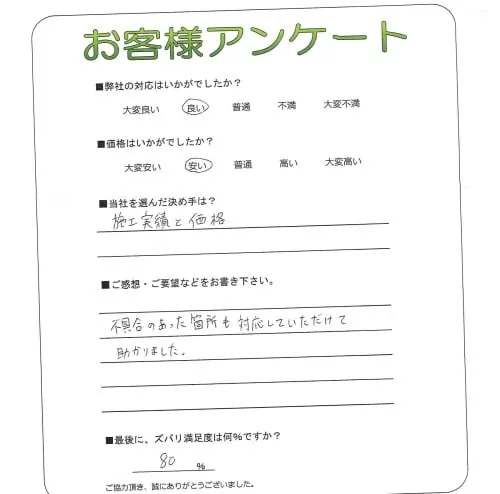 お客様アンケート
■弊社の対応はいかがでしたか？
大変良い 良い 普通 不満 大変不満
■価格はいかがでしたか？
大変安い 安い 普通 高い 大変高い
■当社を選んだ決め手は？
施工実績と価格
■ご感想・ご要望などをお書き下さい。
不具合のあった箇所も対応していただけて
助かりました。
■最後に、ズバリ満足度は何%ですか？
80 %
ご協力頂き、誠にありがとうございました。